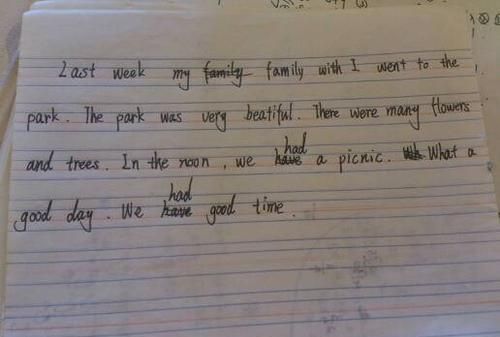 Last week my family family with I went to the
park. The park was very beatiful. There were many flowers
and trees. In the noon, we have had a picnic. Wh What a
good day. We have had good time.